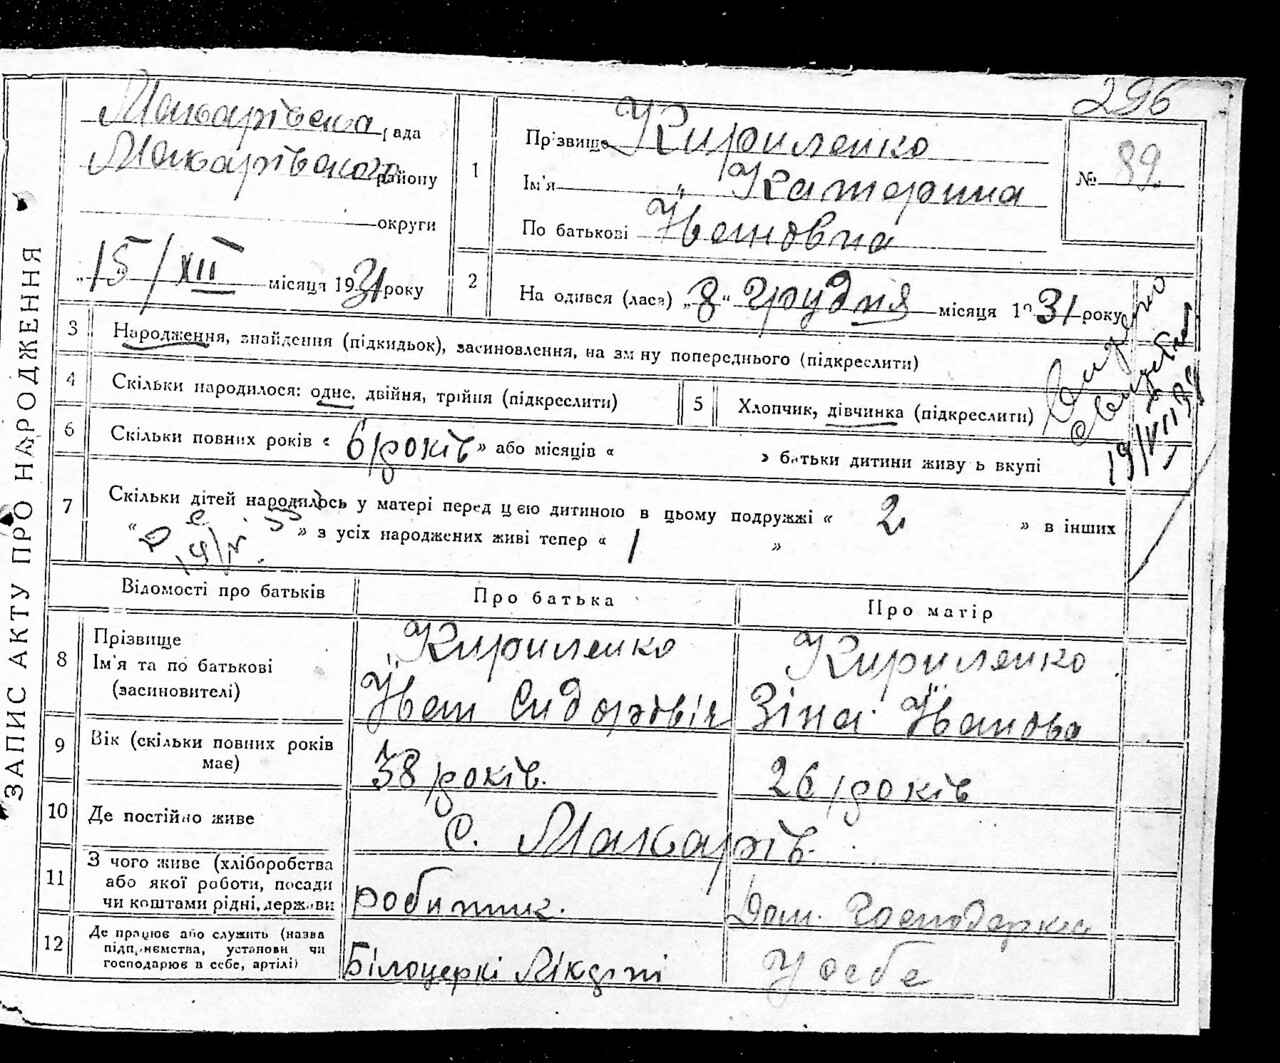 296
ЗАПИС АКТУ ПРО НАРОДЖЕННЯ
Макарівська рада
Макарівського району
округи
"15/XII місяця 1931 року
1
Прізвище Кириленко
Ім'я " Катерина
По батькові Івановна
№ 89.
2
На одився (лася) „8" Грудня місяця 1931 року
3
Народження, знайдення (підкидьок), засиновлення, на зміну попереднього (підкреслити)
4
Скільки народилося: одне, двійня, трійня (підкреслити)
5
Хлопчик, дівчинка (підкреслити)
Видено
19/VII 38
6
Скільки повних років « 6 років » або місяців « » батьки дитини живуть вкупі
7
Скільки дітей народилось у матері перед цією дитиною в цьому подружжі « 2 » в інших
« » з усіх народжених живі тепер « 1 »
Відомості про батьків
Про батька
Про матір
8
Прізвище
Ім'я та по батькові
(засиновителі)
Кириленко
Іван Сидорович
Кириленко
Зіна Іванова
9
Вік (скільки повних років
має)
38 років.
26 років
10
Де постійно живе
с. Макарів.
11
З чого живе (хліборобства
або якої роботи, посади
чи коштами рідні, держави
робитник.
Дом. Господарка
12
Де працює або служить (назва
підприємства, установи чи
господарює в себе, артілі)
Білоцеркі
У себе